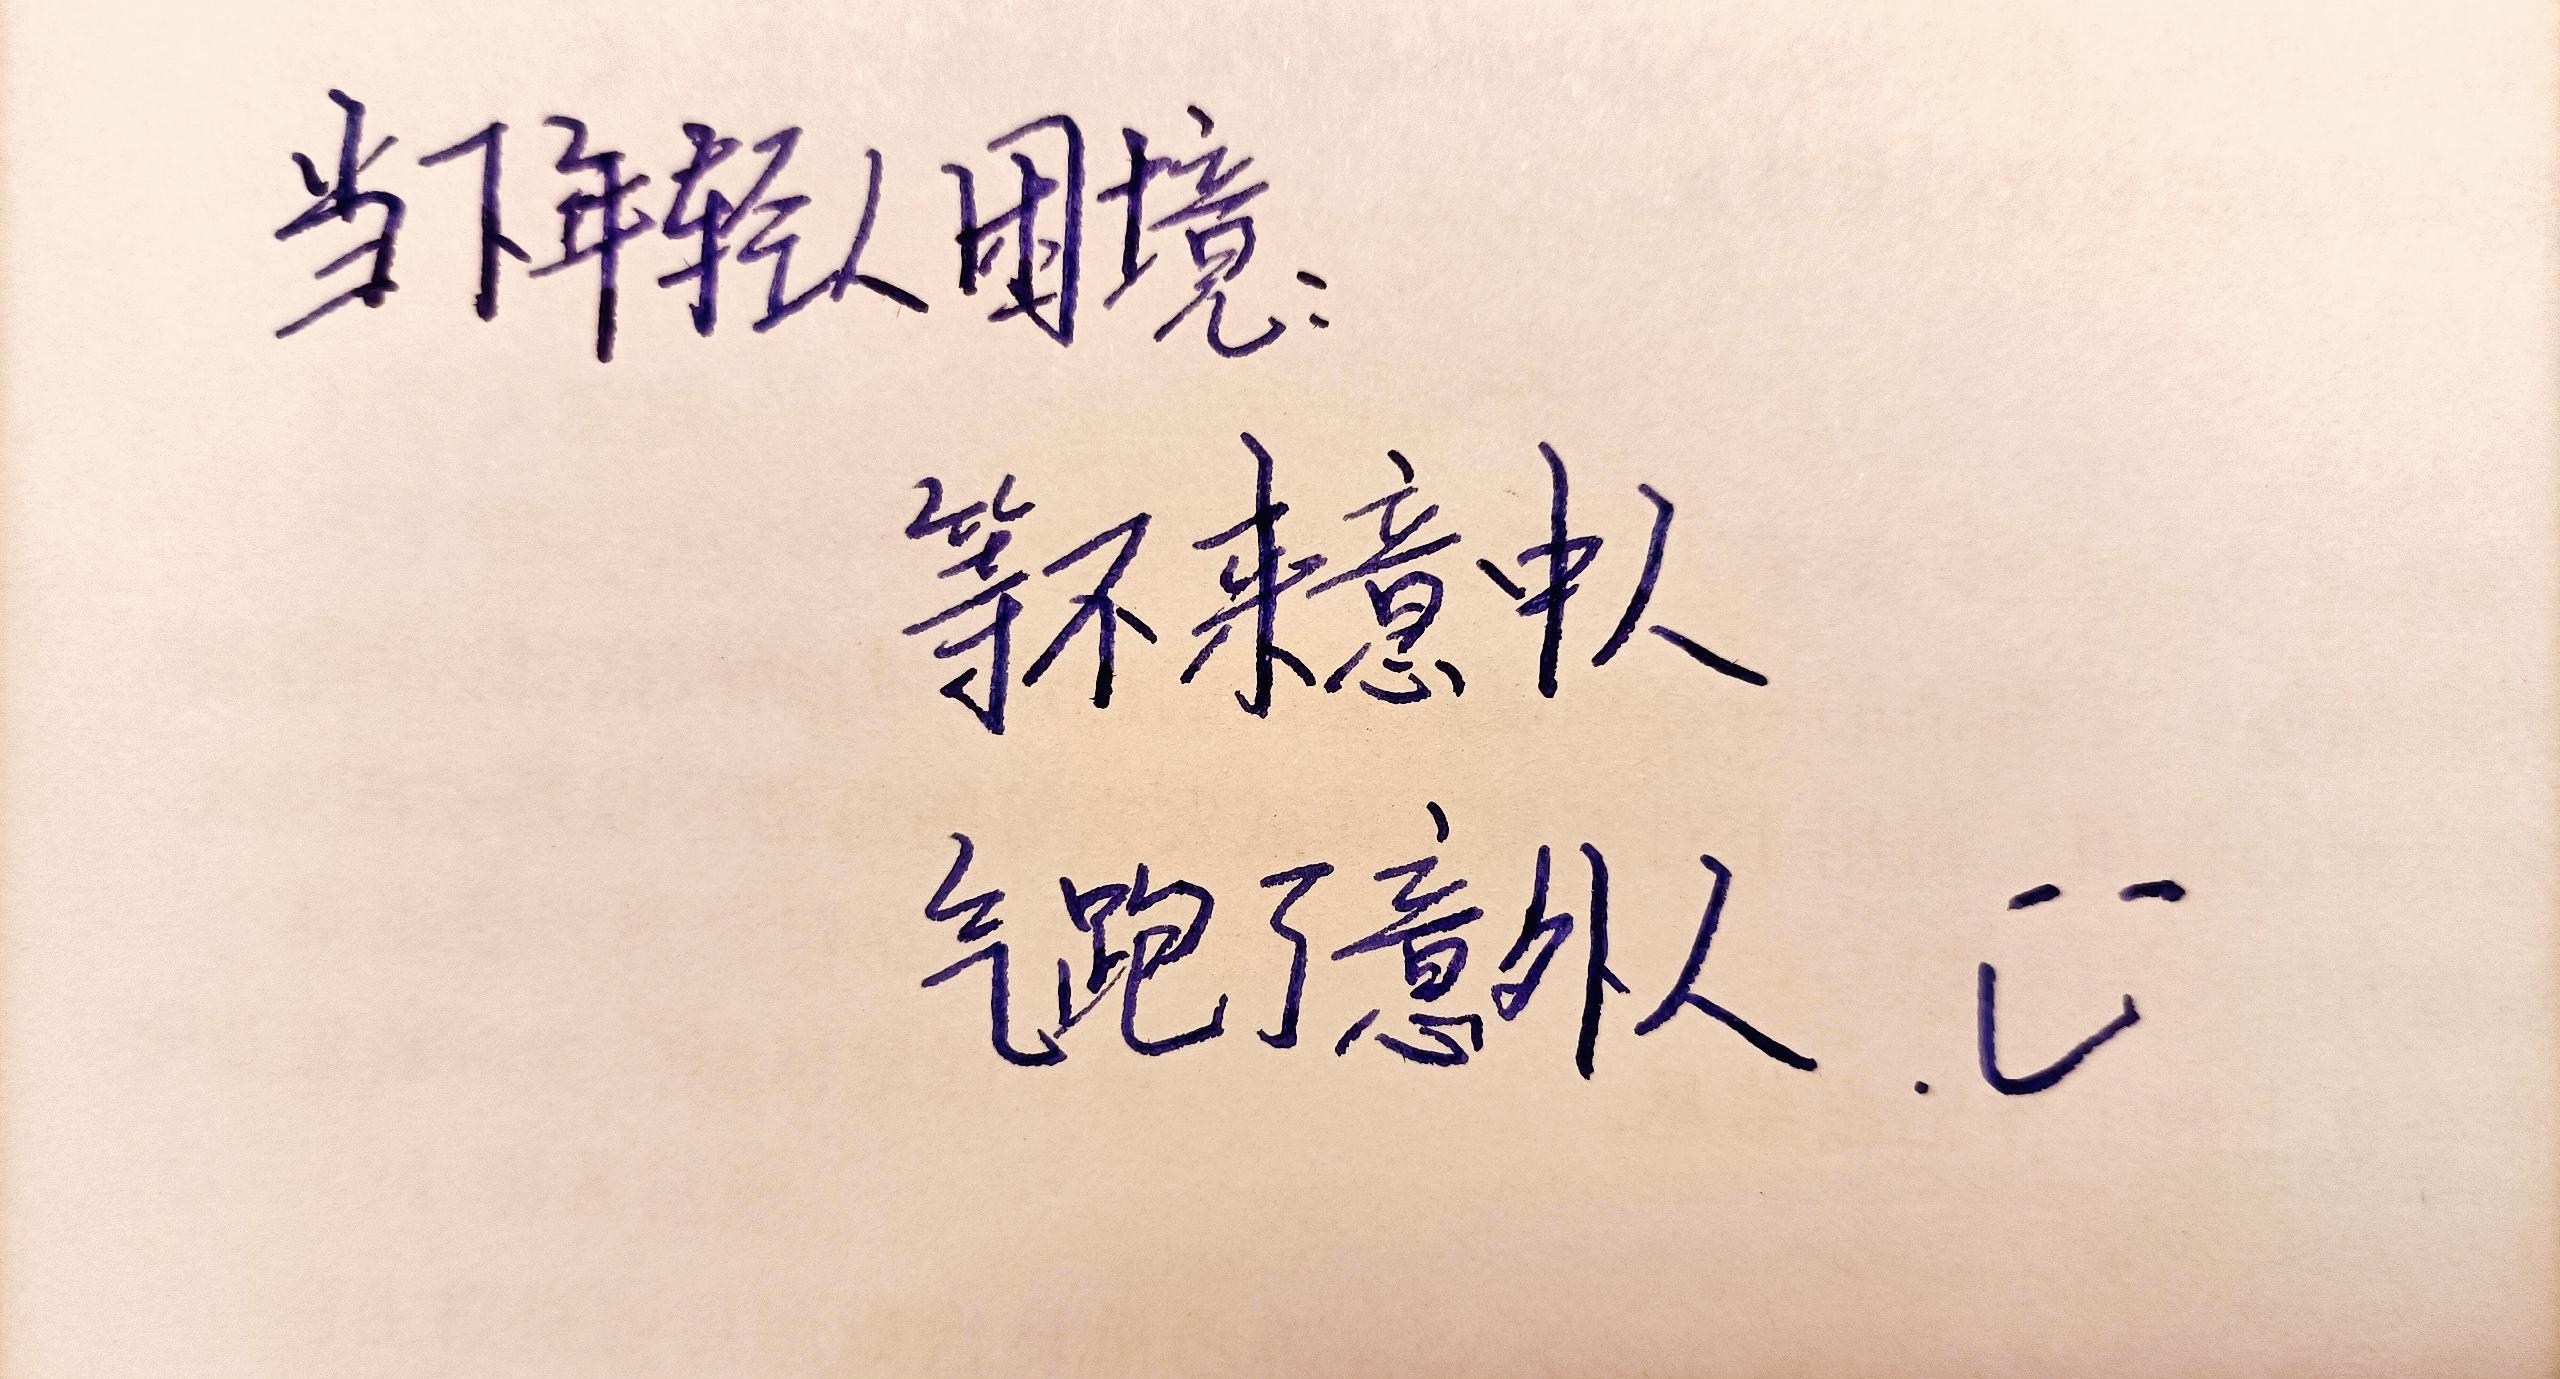 当下年轻人困境：
等不来意中人
气跑了意外人.